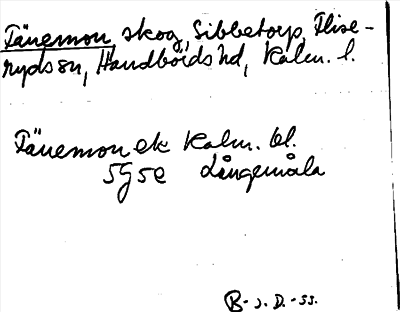 Tänemon skog, Sibbetorp, Flise-
ryds sn, Handbörds hd, Kalm. l.
Tänemon ek Kalm. bl.
5g5e Långemåla
B- s. D.-ss.